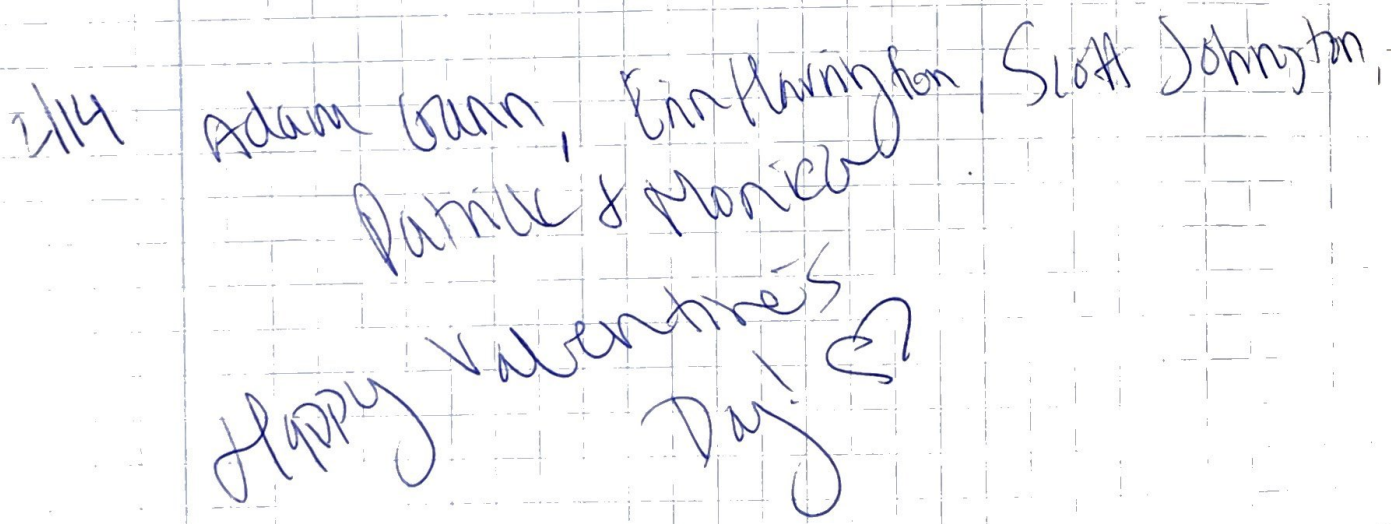 2/14 Adam Gann, Erin Harrington, Scott Johnston,
Patrick & Monica
Happy Valentine's
Day!